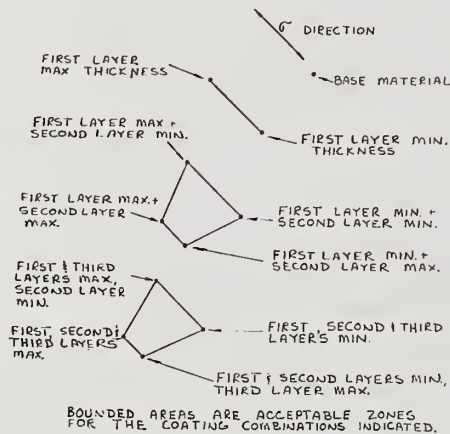 σ DIRECTION
FIRST LAYER
MAX THICKNESS
BASE MATERIAL
FIRST LAYER MAX +
SECOND LAYER MIN.
FIRST LAYER MIN.
THICKNESS
FIRST LAYER MAX.+
SECOND LAYER
MAX.
FIRST LAYER MIN. +
SECOND LAYER MIN.
FIRST LAYER MIN. +
SECOND LAYER MAX.
FIRST & THIRD
LAYERS MAX,
SECOND LAYER
MIN.
FIRST, SECOND &
THIRD LAYERS
MAX.
FIRST, SECOND & THIRD
LAYERS MIN.
FIRST & SECOND LAYERS MIN.,
THIRD LAYER MAX.
BOUNDED AREAS ARE ACCEPTABLE ZONES
FOR THE COATING COMBINATIONS INDICATED.